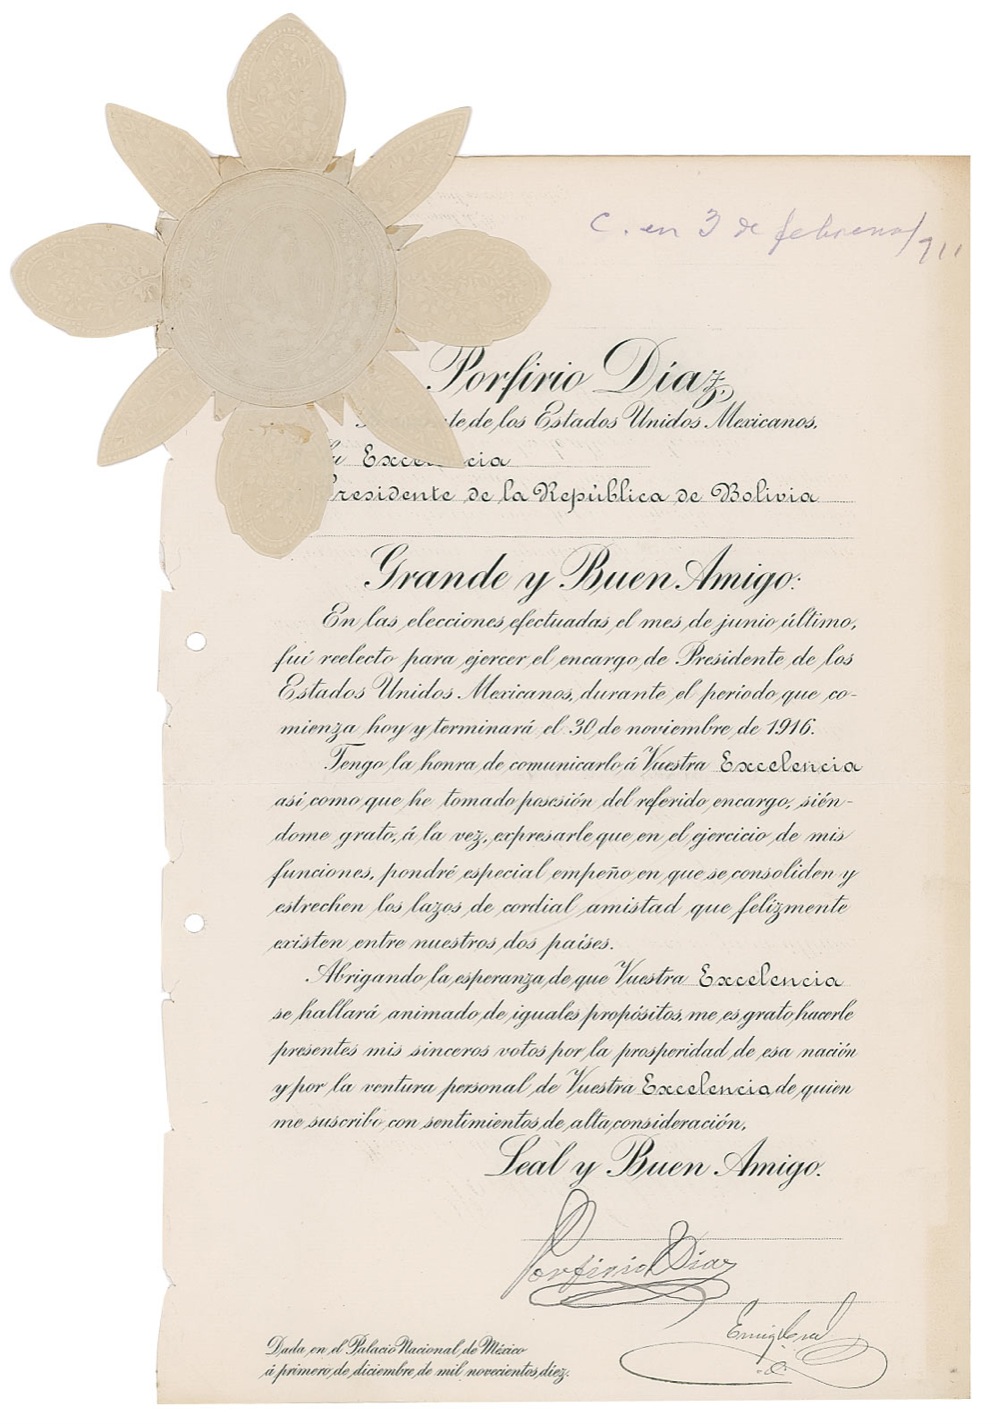 C. en 3 de febrero/911
Porfirio Díaz,
te de los Estados Unidos Mexicanos,
Excelencia
Presidente de la República de Bolivia
Grande y Buen Amigo:
En las elecciones efectuadas el mes de junio último,
fuí reelecto para ejercer el encargo de Presidente de los
Estados Unidos Mexicanos, durante el período que co-
mienza hoy y terminará el 30 de noviembre de 1916.
Tengo la honra de comunicarlo á Vuestra Excelencia
así como que he tomado posesión del referido encargo, sién-
dome grato, á la vez, expresarle que en el ejercicio de mis
funciones, pondré especial empeño en que se consoliden y
estrechen los lazos de cordial amistad que felizmente
existen entre nuestros dos países.
Abrigando la esperanza de que Vuestra Excelencia
se hallará animado de iguales propósitos, me es grato hacerle
presentes mis sinceros votos por la prosperidad de esa nación
y por la ventura personal de Vuestra Excelencia, de quien
me suscribo con sentimientos de alta consideración,
Leal y Buen Amigo.
Porfirio Díaz
Dada en el Palacio Nacional de México
á primero de diciembre de mil novecientos diez.